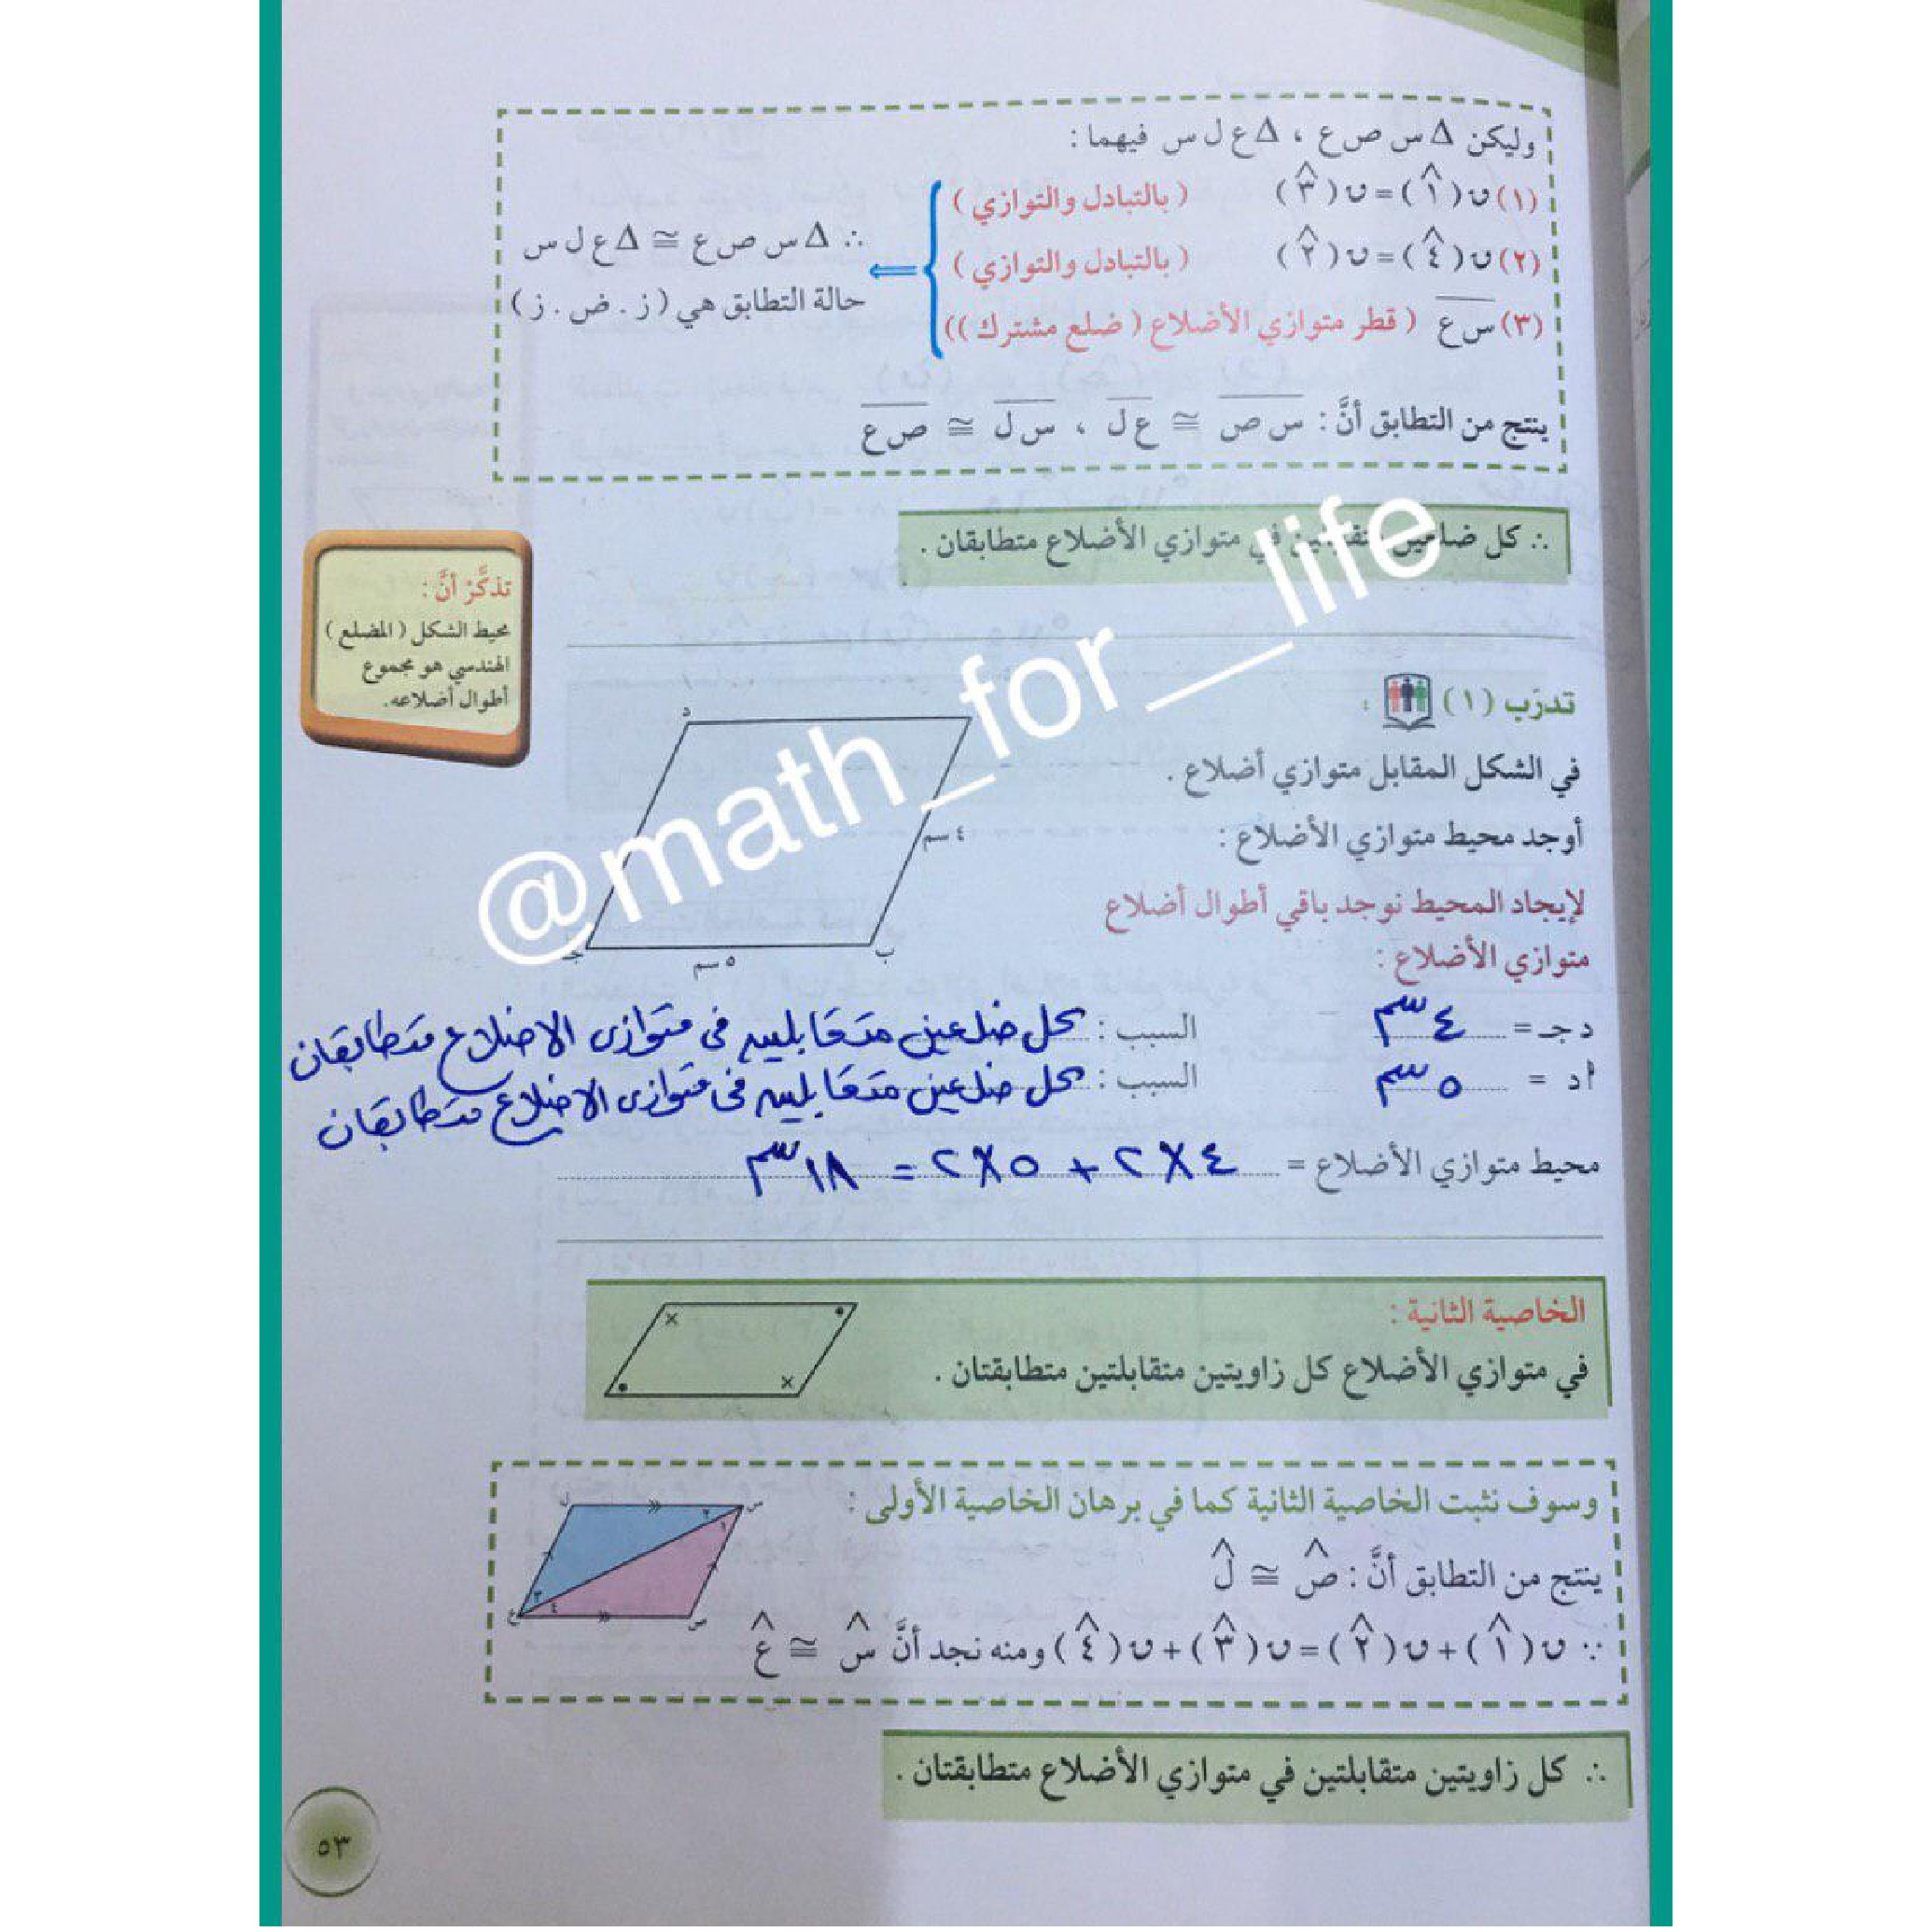 وليكن Δ س ص ع ، Δ ع ل س فيهما :
(١) ن(١̂) = ن(٣̂) ( بالتبادل والتوازي )
(٢) ن(٤̂) = ن(٢̂) ( بالتبادل والتوازي )
(٣) س ع ( قطر متوازي الأضلاع ( ضلع مشترك ))
∴ Δ س ص ع ≅ Δ ع ل س
حالة التطابق هي ( ز . ض . ز )
ينتج من التطابق أنَّ : س ص ≅ ع ل ، س ل ≅ ص ع
∴ كل ضلعين متقابلين في متوازي الأضلاع متطابقان .
@math_for__life
تذكَّر أنَّ :
محيط الشكل ( المضلع )
الهندسي هو مجموع
أطوال أضلاعه.
تدرّب (١) :
في الشكل المقابل متوازي أضلاع .
أوجد محيط متوازي الأضلاع :
لإيجاد المحيط نوجد باقي أطوال أضلاع
متوازي الأضلاع :
د
٤ سم
ب
جـ
٥ سم
د جـ = ٤ سم السبب : كل ضلعين متقابلين في متوازي الاضلاع متطابقان
أ د = ٥ سم السبب : كل ضلعين متقابلين في متوازي الاضلاع متطابقان
محيط متوازي الأضلاع = ٤ × ٢ + ٥ × ٢ = ١٨ سم
الخاصية الثانية :
في متوازي الأضلاع كل زاويتين متقابلتين متطابقتان .
وسوف نثبت الخاصية الثانية كما في برهان الخاصية الأولى :
ل
س
٢
١
٣
٤
ع
ص
ينتج من التطابق أنَّ : ص̂ ≅ ل̂
∵ ن(١̂) + ن(٢̂) = ن(٣̂) + ن(٤̂) ومنه نجد أنَّ س̂ ≅ ع̂
∴ كل زاويتين متقابلتين في متوازي الأضلاع متطابقتان .
٥٣